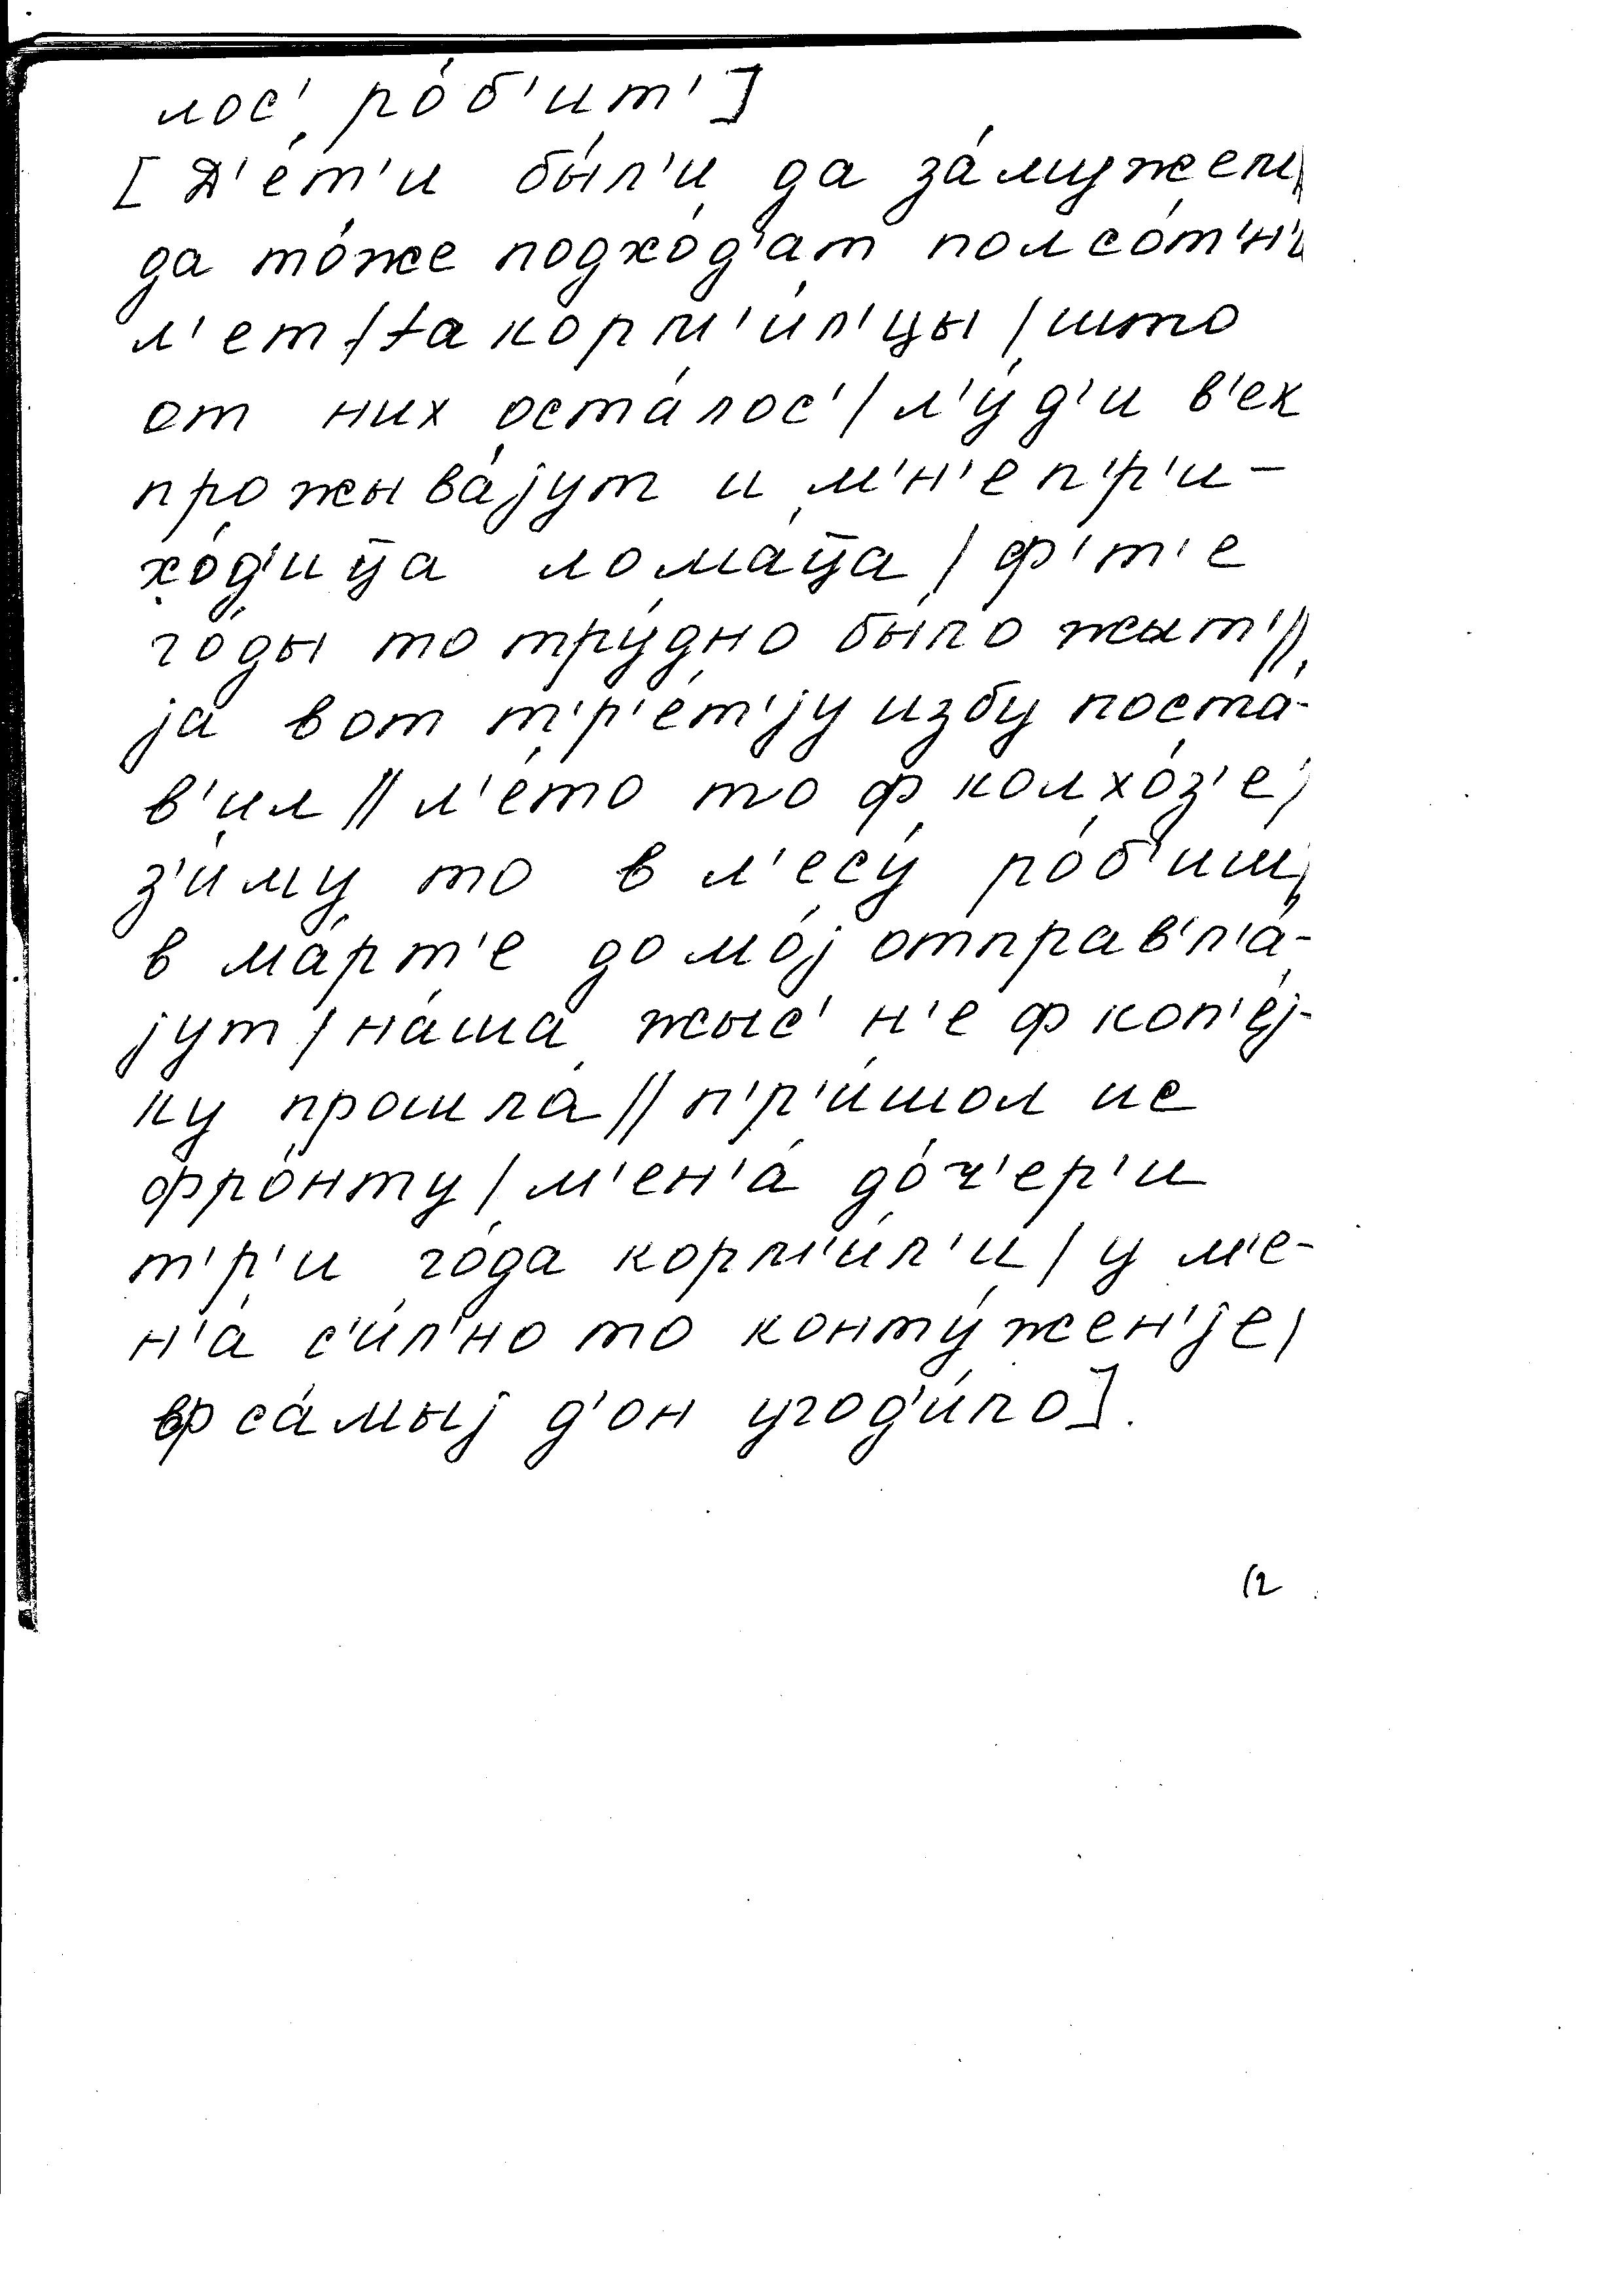 лос' ро́б'ит']
[Д'е́т'и бы́л'и да за́мужем/
да то́же подхо́д'ат полсо́т'н'и
л'ет / та корм'и́л'цы / што
от них оста́лос' / л'у́д'и в'ек
прожыва́jут и м'н'е п'р'и-
хо́д'ица лома́ца / ф'т'е
го́ды то тру́дно бы́ло жыт' //
jа вот т'р'е́т'jу избу поста́-
в'ил // л'е́то то ф колхо́з'е /
з'и́му то в л'есу́ ро́б'иш /
в ма́рт'е домо́j отправ'л'а́-
jут / на́ша жыс' н'е ф коп'е́j-
ку прошла́ // п'р'и́шол ис
фро́нту / м'ен'а́ до́ч'ер'и
т'р'и го́да корм'и́л'и / у м'е-
н'а́ с'и́л'но то конту́жен'jе /
ф са́мыj д'он угод'и́ло].
12